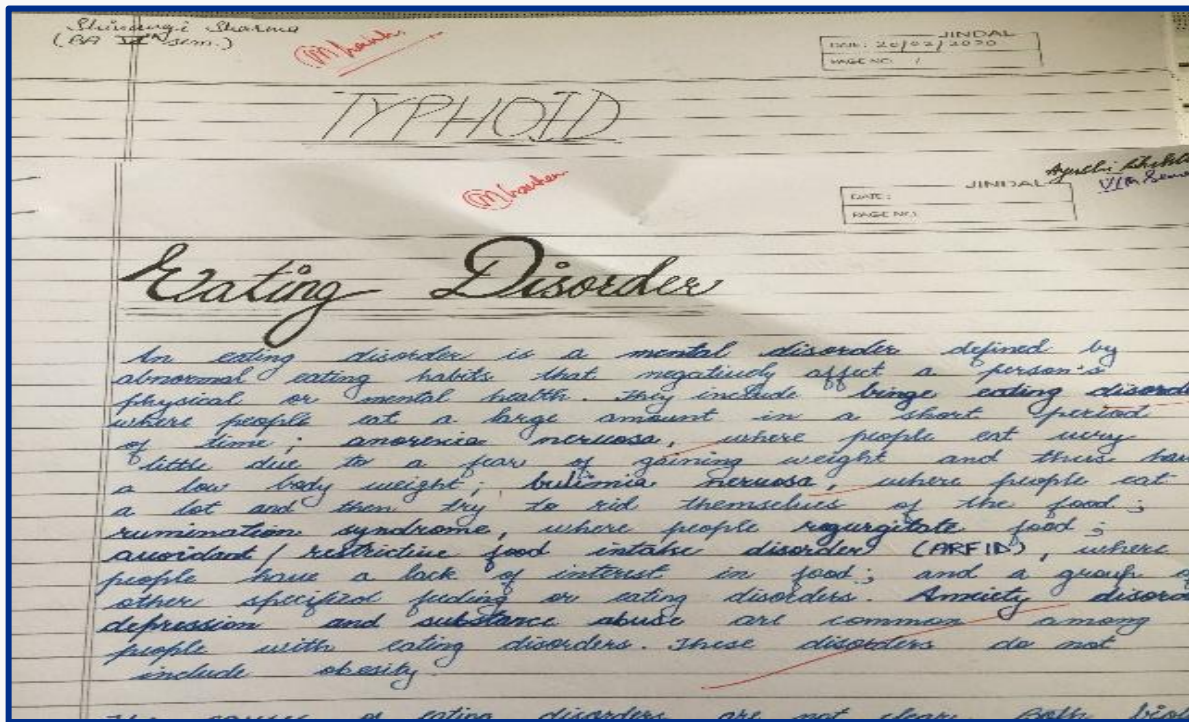 Shivangi Sharma
(BA sem.)
JINDAL
DATE: 20/02/2020
PAGE NO: 1
TYPHOID
JINDAL
DATE:
PAGE NO:
Eating Disorder
An eating disorder is a mental disorder defined by
abnormal eating habits that negatively affect a person's
physical or mental health. They include binge eating disorde
where people eat a large amount in a short period
of time; anorexia nervosa, where people eat very
little due to a fear of gaining weight and thus have
a low body weight; bulimia nervosa, where people eat
a lot and then try to rid themselves of the food;
rumination syndrome, where people regurgitate food;
avoidant/restrictive food intake disorder (ARFID), where
people have a lack of interest in food; and a group of
other specified feeding or eating disorders. Anxiety disord
depression and substance abuse are common among
people with eating disorders. These disorders do not
include obesity.
causes of eating disorders are not clear. Both